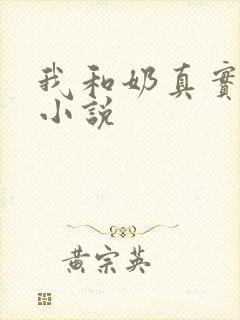 我和奶真實
小說
黃宗英